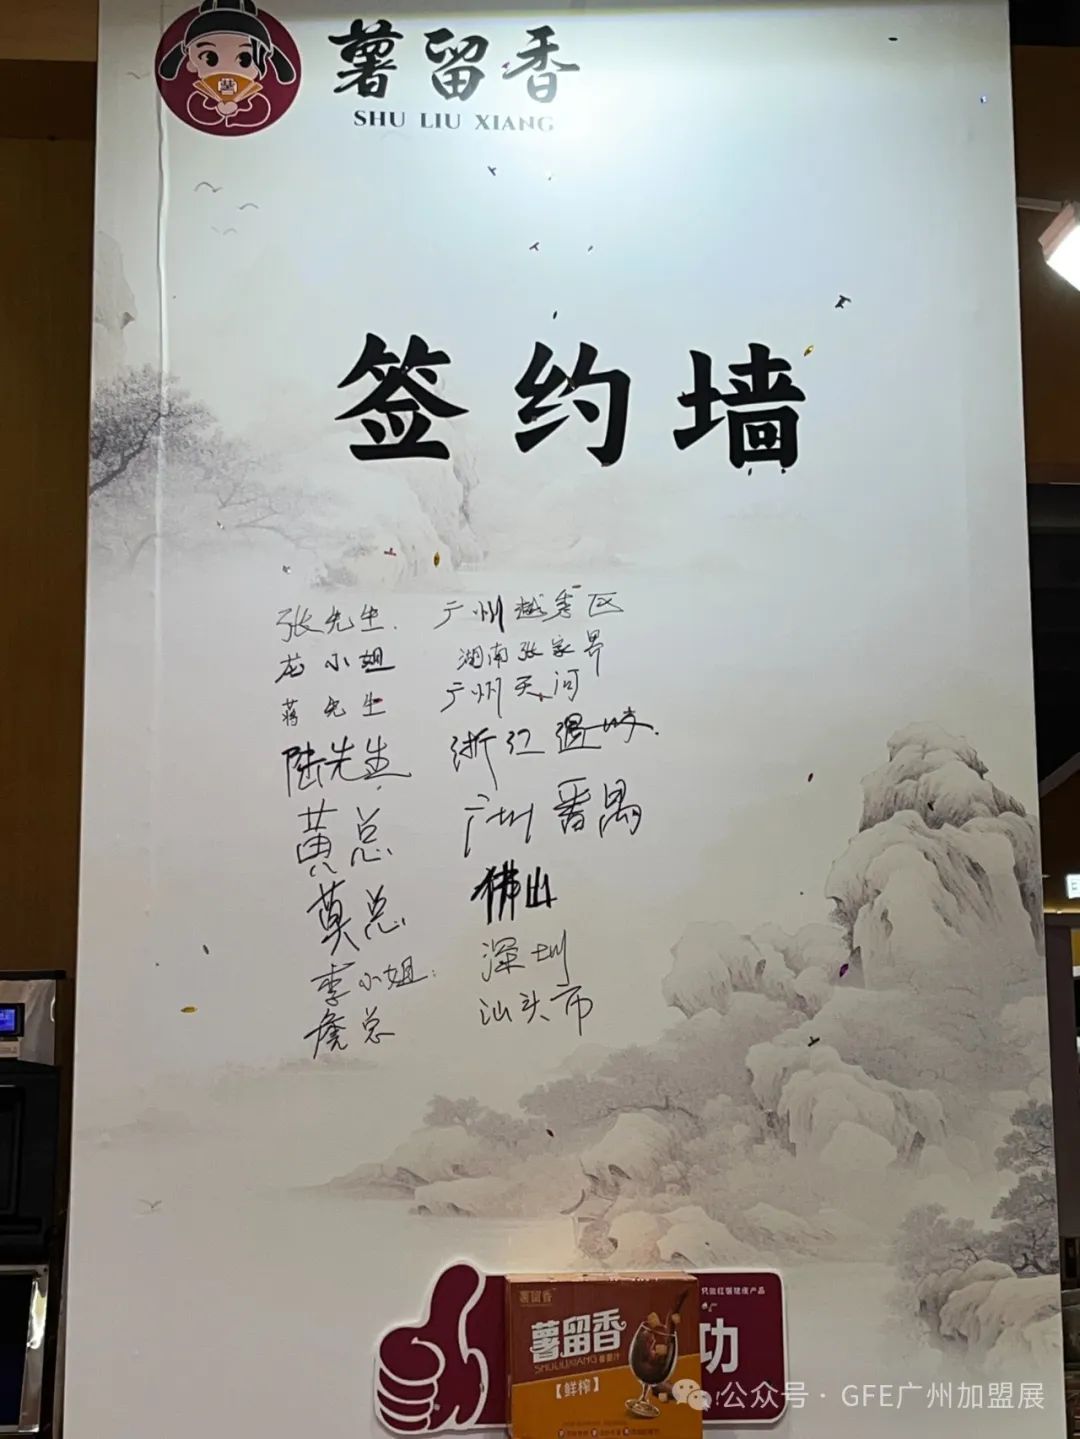 薯留香
SHU LIU XIANG
签约墙
张先生. 广州越秀区
龙小姐 湖南张家界
蒋先生 广州天河
陆先生 浙江
黄总 广州番禺
莫总 佛山
李小姐: 深圳
詹总 汕头市
薯留香
薯留香
SHULIUXIANG
【鲜榨】
功
公众号 · GFE广州加盟展